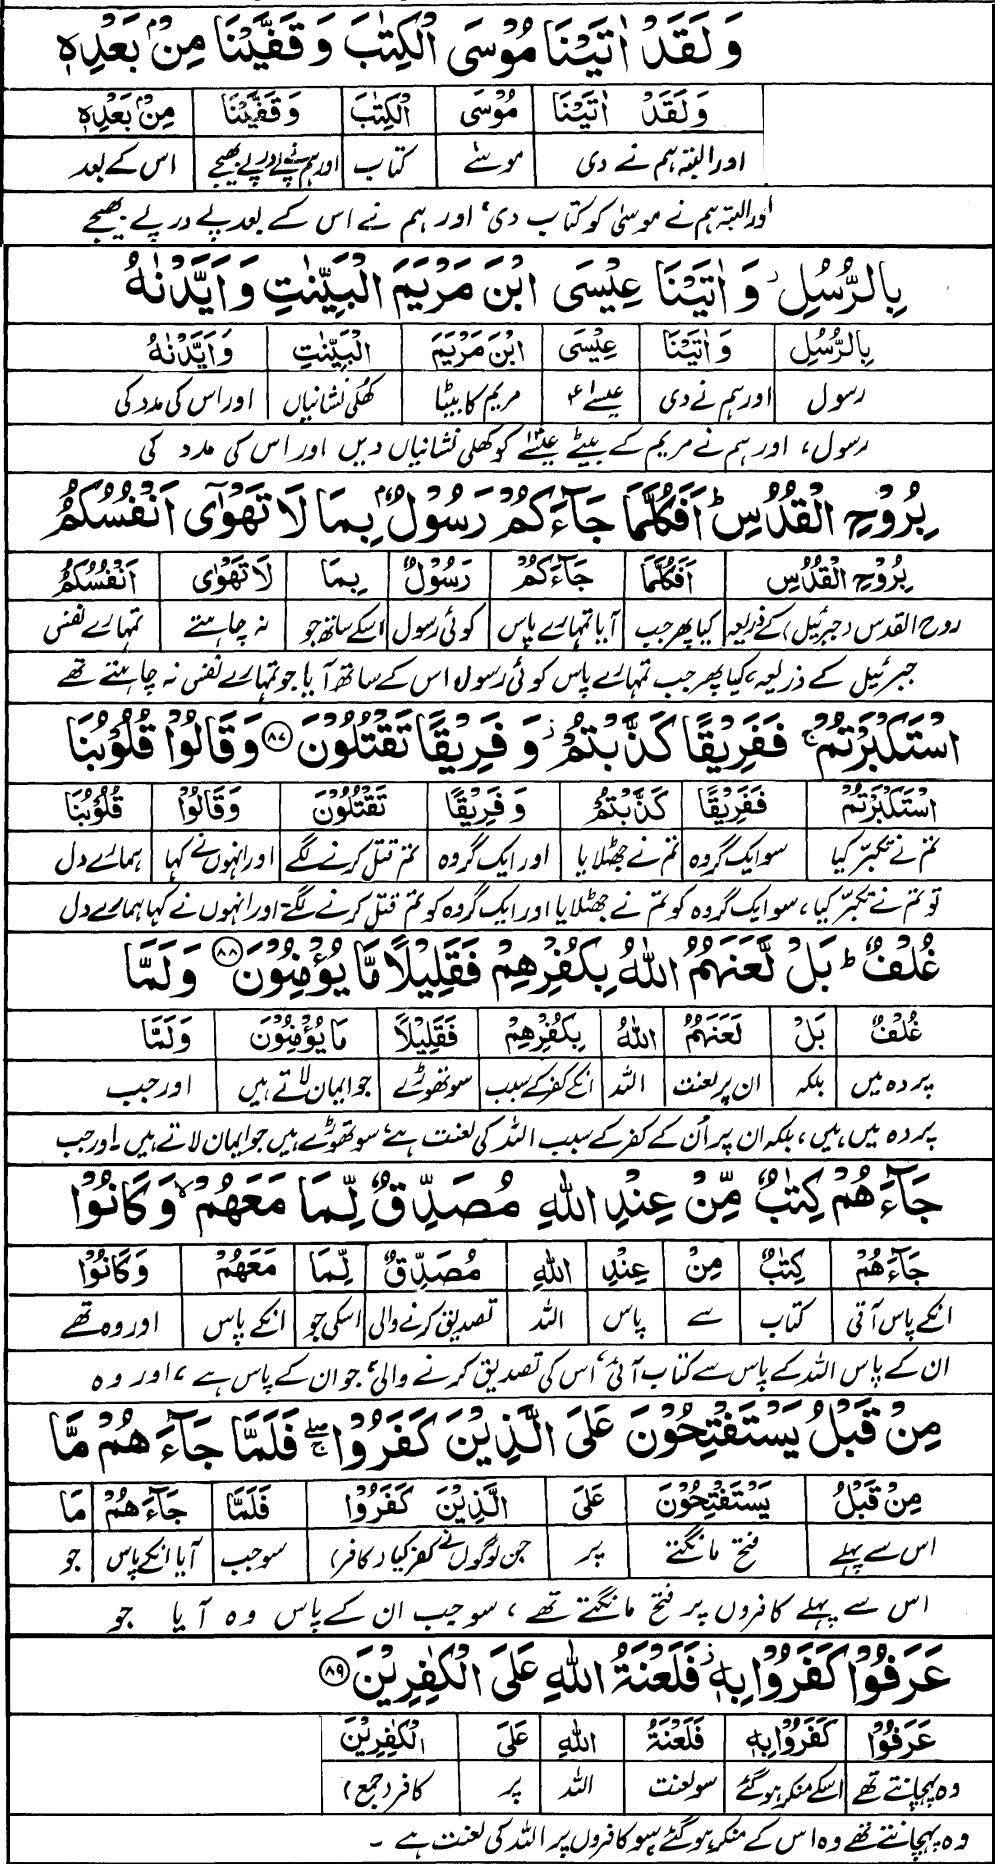 وَلَقَدْ اٰتَيْنَا مُوْسَى الْكِتٰبَ وَقَفَّيْنَا مِنْۢ بَعْدِهٖ
وَلَقَدْ اٰتَيْنَا مُوْسَى الْكِتٰبَ وَقَفَّيْنَا مِنْۢ بَعْدِهٖ
اور البتہ ہم نے دی موسٰے کتاب اور ہم نے پے درپے بھیجے اس کے بعد
اور البتہ ہم نے موسیٰ کو کتاب دی، اور ہم نے اس کے بعد پے در پے بھیجے
بِالرُّسُلِ وَاٰتَيْنَا عِيْسَى ابْنَ مَرْيَمَ الْبَيِّنٰتِ وَاَيَّدْنٰهُ
بِالرُّسُلِ وَاٰتَيْنَا عِيْسَى ابْنَ مَرْيَمَ الْبَيِّنٰتِ وَاَيَّدْنٰهُ
رسول اور ہم نے دی عیسےٰ مریم کا بیٹا کھلی نشانیاں اور اس کی مدد کی
رسول، اور ہم نے مریم کے بیٹے عیسٰےؑ کو کھلی نشانیاں دیں اور اس کی مدد کی
بِرُوْحِ الْقُدُسِ ؕ اَفَكُلَّمَا جَآءَكُمْ رَسُوْلٌۢ بِمَا لَا تَهْوٰٓى اَنْفُسُكُمُ
بِرُوْحِ الْقُدُسِ اَفَكُلَّمَا جَآءَكُمْ رَسُوْلٌۢ بِمَا لَا تَهْوٰٓى اَنْفُسُكُمُ
روح القدس (جبرئیل) کے ذریعہ کیا پھر جب آیا تمہارے پاس کوئی رسول اسکے ساتھ جو نہ چاہتے تمہارے نفس
جبرئیل کے ذریعہ، کیا پھر جب تمہارے پاس کوئی رسول اس کے ساتھ آیا جو تمہارے نفس نہ چاہتے تھے
اسْتَكْبَرْتُمْ ۚ فَفَرِيْقًا كَذَّبْتُمْ ؗ وَفَرِيْقًا تَقْتُلُوْنَ ۸۷ وَقَالُوْا قُلُوْبُنَا
اسْتَكْبَرْتُمْ فَفَرِيْقًا كَذَّبْتُمْ وَفَرِيْقًا تَقْتُلُوْنَ وَقَالُوْا قُلُوْبُنَا
تم نے تکبر کیا سو ایک گروہ تم نے جھٹلایا اور ایک گروہ تم قتل کرنے لگے اور انہوں نے کہا ہمارے دل
تو تم نے تکبر کیا، سو ایک گروہ کو تم نے جھٹلایا اور ایک گروہ کو تم قتل کرنے لگے اور انہوں نے کہا ہمارے دل
غُلْفٌ ؕ بَلْ لَّعَنَهُمُ اللّٰهُ بِكُفْرِهِمْ فَقَلِيْلًا مَّا يُؤْمِنُوْنَ ۸۸ وَلَمَّا
غُلْفٌ بَلْ لَعَنَهُمُ اللّٰهُ بِكُفْرِهِمْ فَقَلِيْلًا مَا يُؤْمِنُوْنَ وَلَمَّا
پردہ میں بلکہ ان پر لعنت اللہ انکے کفر کے سبب سو تھوڑے جو ایمان لاتے ہیں اور جب
پردہ میں ہیں، بلکہ ان پر اُن کے کفر کے سبب اللہ کی لعنت ہے، سو تھوڑے ہیں جو ایمان لاتے ہیں۔ اور جب
جَآءَهُمْ كِتٰبٌ مِّنْ عِنْدِ اللّٰهِ مُصَدِّقٌ لِّمَا مَعَهُمْ ۙ وَكَانُوْا
جَآءَهُمْ كِتٰبٌ مِنْ عِنْدِ اللّٰهِ مُصَدِّقٌ لِّمَا مَعَهُمْ وَكَانُوْا
انکے پاس آئی کتاب سے پاس اللہ تصدیق کرنے والی اسکی جو انکے پاس اور وہ تھے
ان کے پاس اللہ کے پاس سے کتاب آئی، اس کی تصدیق کرنے والی، جو ان کے پاس ہے، اور وہ
مِنْ قَبْلُ يَسْتَفْتِحُوْنَ عَلَى الَّذِيْنَ كَفَرُوْا ۚۖ فَلَمَّا جَآءَهُمْ مَّا
مِنْ قَبْلُ يَسْتَفْتِحُوْنَ عَلَى الَّذِيْنَ كَفَرُوْا فَلَمَّا جَآءَهُمْ مَا
اس سے پہلے فتح مانگتے پر جن لوگوں نے کفر کیا (کافر) سو جب آیا انکے پاس جو
اس سے پہلے کافروں پر فتح مانگتے تھے، سو جب ان کے پاس وہ آیا جو
عَرَفُوْا كَفَرُوْا بِهٖ ؗ فَلَعْنَةُ اللّٰهِ عَلَى الْكٰفِرِيْنَ ۸۹
عَرَفُوْا كَفَرُوْا بِهٖ فَلَعْنَةُ اللّٰهِ عَلَى الْكٰفِرِيْنَ
وہ پہچانتے تھے اسکے منکر ہو گئے سو لعنت اللہ پر کافر (جمع)
وہ پہچانتے تھے وہ اس کے منکر ہو گئے سو کافروں پر اللہ کی لعنت ہے۔